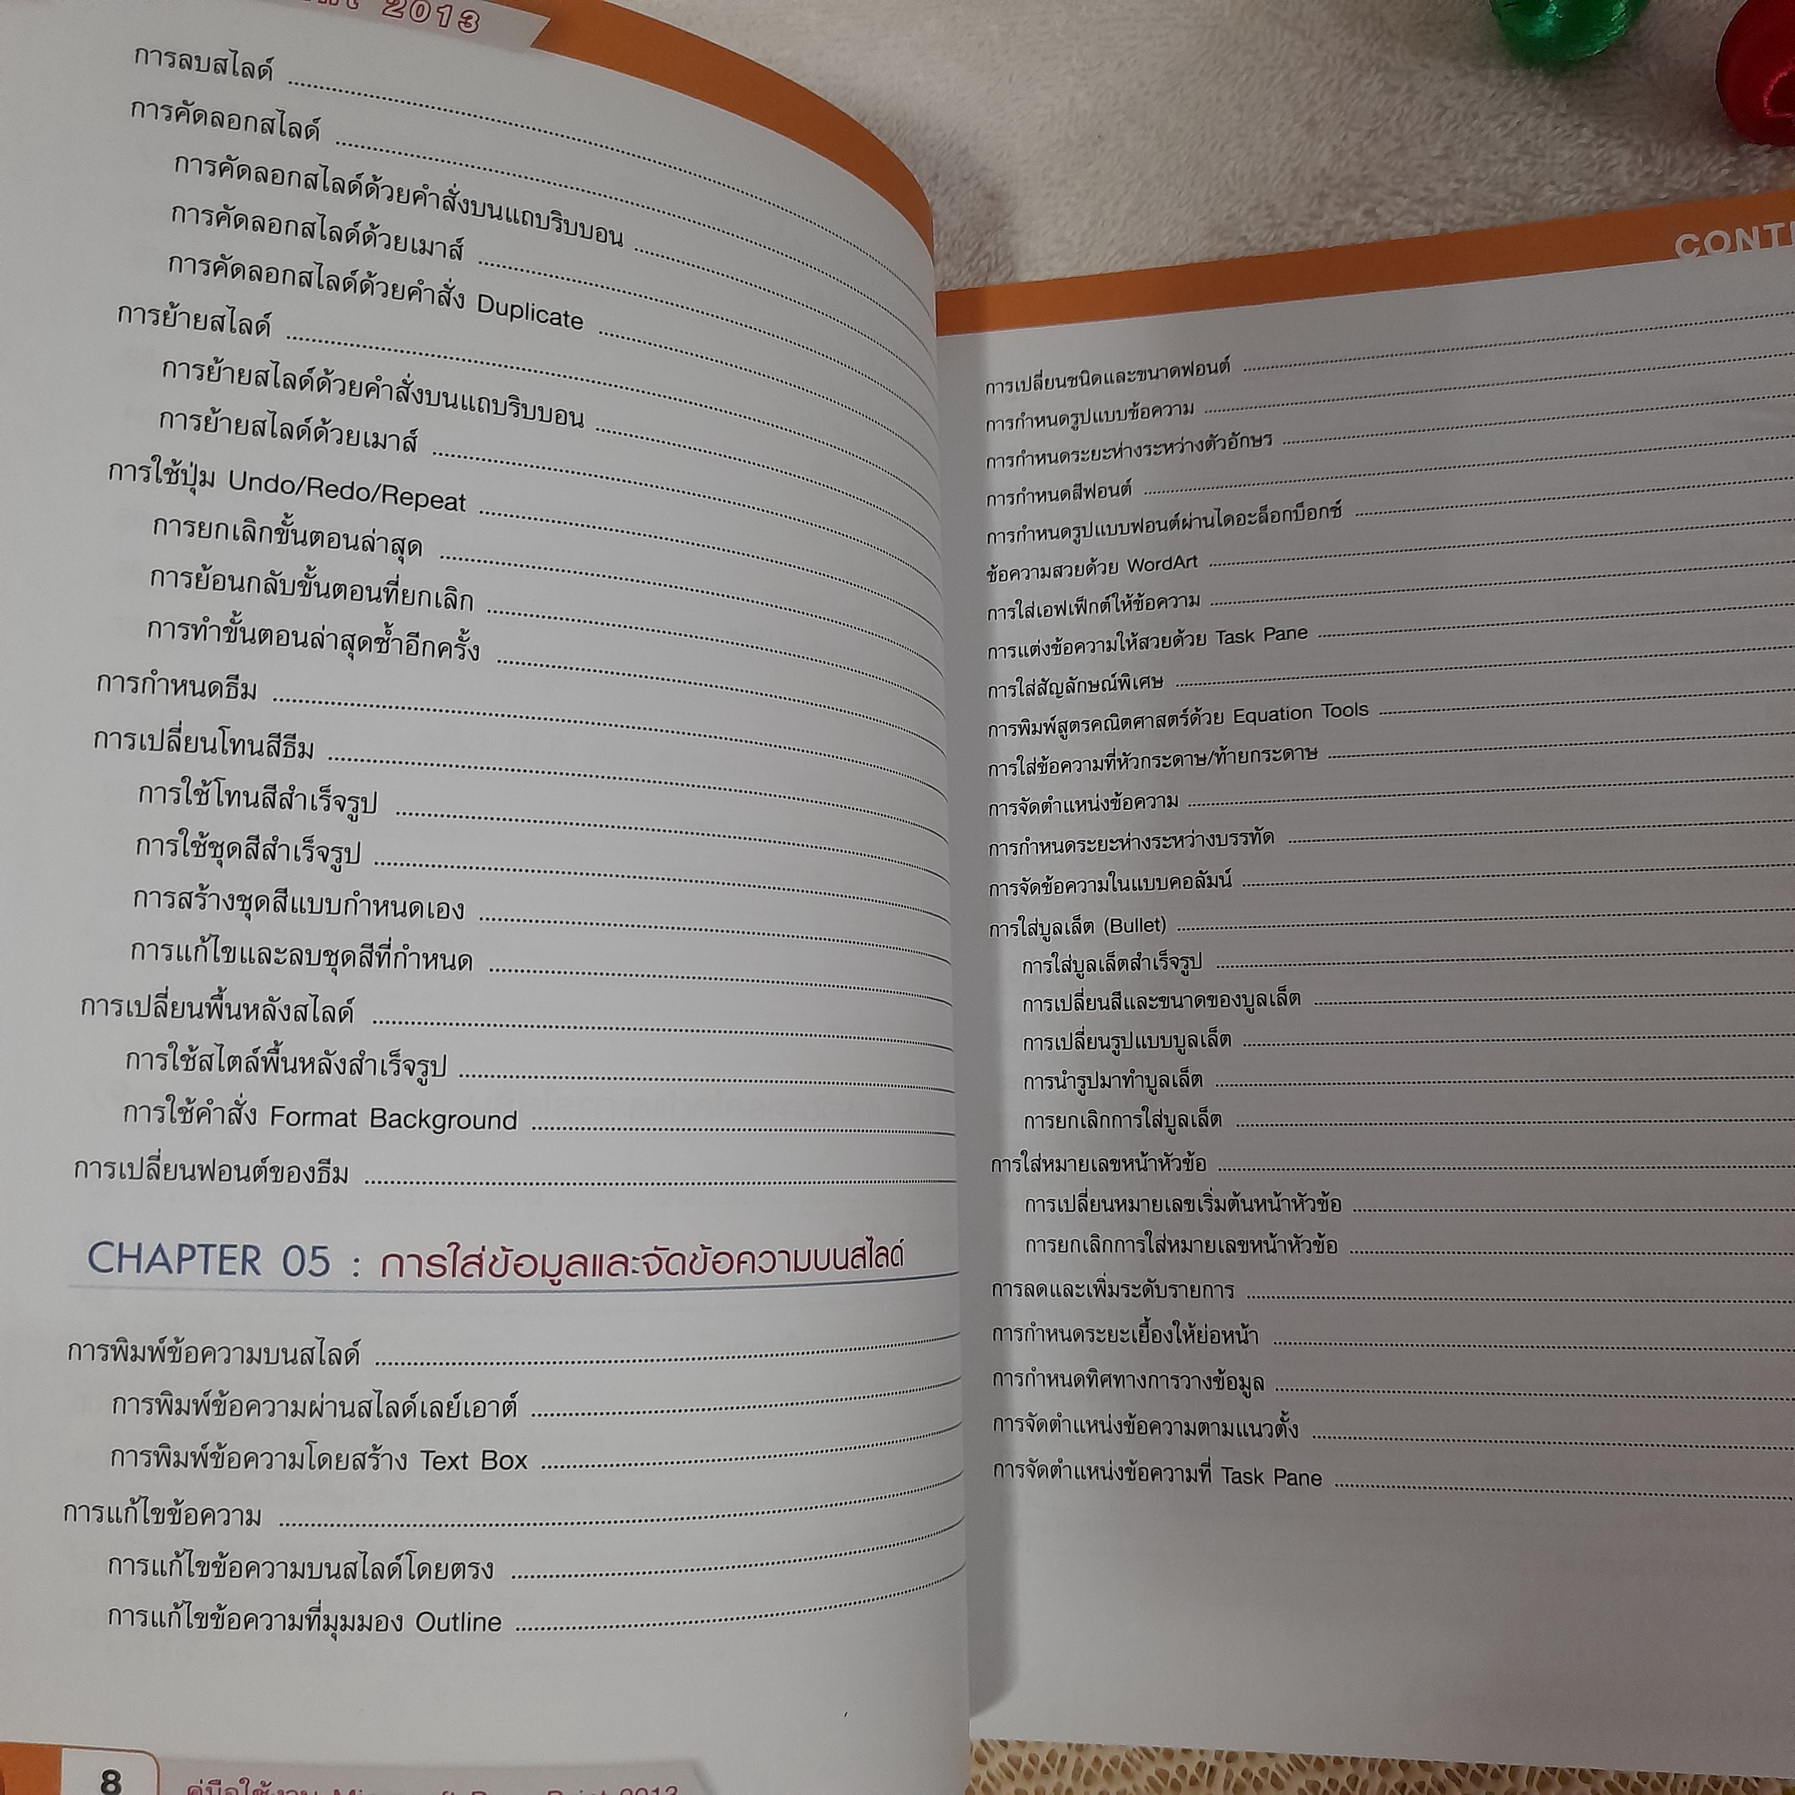 2013
การลบสไลด์
การคัดลอกสไลด์
การคัดลอกสไลด์ด้วยคำสั่งบนแถบริบบอน
การคัดลอกสไลด์ด้วยเมาส์
การคัดลอกสไลด์ด้วยคำสั่ง Duplicate
การย้ายสไลด์
การย้ายสไลด์ด้วยคำสั่งบนแถบริบบอน
การย้ายสไลด์ด้วยเมาส์
การใช้ปุ่ม Undo/Redo/Repeat
การยกเลิกขั้นตอนล่าสุด
การย้อนกลับขั้นตอนที่ยกเลิก
การทำขั้นตอนล่าสุดซ้ำอีกครั้ง
การกำหนดธีม
การเปลี่ยนโทนสีธีม
การใช้โทนสีสำเร็จรูป
การใช้ชุดสีสำเร็จรูป
การสร้างชุดสีแบบกำหนดเอง
การแก้ไขและลบชุดสีที่กำหนด
การเปลี่ยนพื้นหลังสไลด์
การใช้สไตล์พื้นหลังสำเร็จรูป
การใช้คำสั่ง Format Background
การเปลี่ยนฟอนต์ของธีม
CHAPTER 05 : การใส่ข้อมูลและจัดข้อความบนสไลด์
การพิมพ์ข้อความบนสไลด์
การพิมพ์ข้อความผ่านสไลด์เลย์เอาต์
การพิมพ์ข้อความโดยสร้าง Text Box
การแก้ไขข้อความ
การแก้ไขข้อความบนสไลด์โดยตรง
การแก้ไขข้อความที่มุมมอง Outline
8 คู่มือใช้งาน Microsoft PowerPoint 2013
CONT
การเปลี่ยนชนิดและขนาดฟอนต์
การกำหนดรูปแบบข้อความ
การกำหนดระยะห่างระหว่างตัวอักษร
การกำหนดสีฟอนต์
การกำหนดรูปแบบฟอนต์ผ่านไดอะล็อกบ็อกซ์
ข้อความสวยด้วย WordArt
การใส่เอฟเฟ็กต์ให้ข้อความ
การแต่งข้อความให้สวยด้วย Task Pane
การใส่สัญลักษณ์พิเศษ
การพิมพ์สูตรคณิตศาสตร์ด้วย Equation Tools
การใส่ข้อความที่หัวกระดาษ/ท้ายกระดาษ
การจัดตำแหน่งข้อความ
การกำหนดระยะห่างระหว่างบรรทัด
การจัดข้อความในแบบคอลัมน์
การใส่บูลเล็ต (Bullet)
การใส่บูลเล็ตสำเร็จรูป
การเปลี่ยนสีและขนาดของบูลเล็ต
การเปลี่ยนรูปแบบบูลเล็ต
การนำรูปมาทำบูลเล็ต
การยกเลิกการใส่บูลเล็ต
การใส่หมายเลขหน้าหัวข้อ
การเปลี่ยนหมายเลขเริ่มต้นหน้าหัวข้อ
การยกเลิกการใส่หมายเลขหน้าหัวข้อ
การลดและเพิ่มระดับรายการ
การกำหนดระยะเยื้องให้ย่อหน้า
การกำหนดทิศทางการวางข้อมูล
การจัดตำแหน่งข้อความตามแนวตั้ง
การจัดตำแหน่งข้อความที่ Task Pane